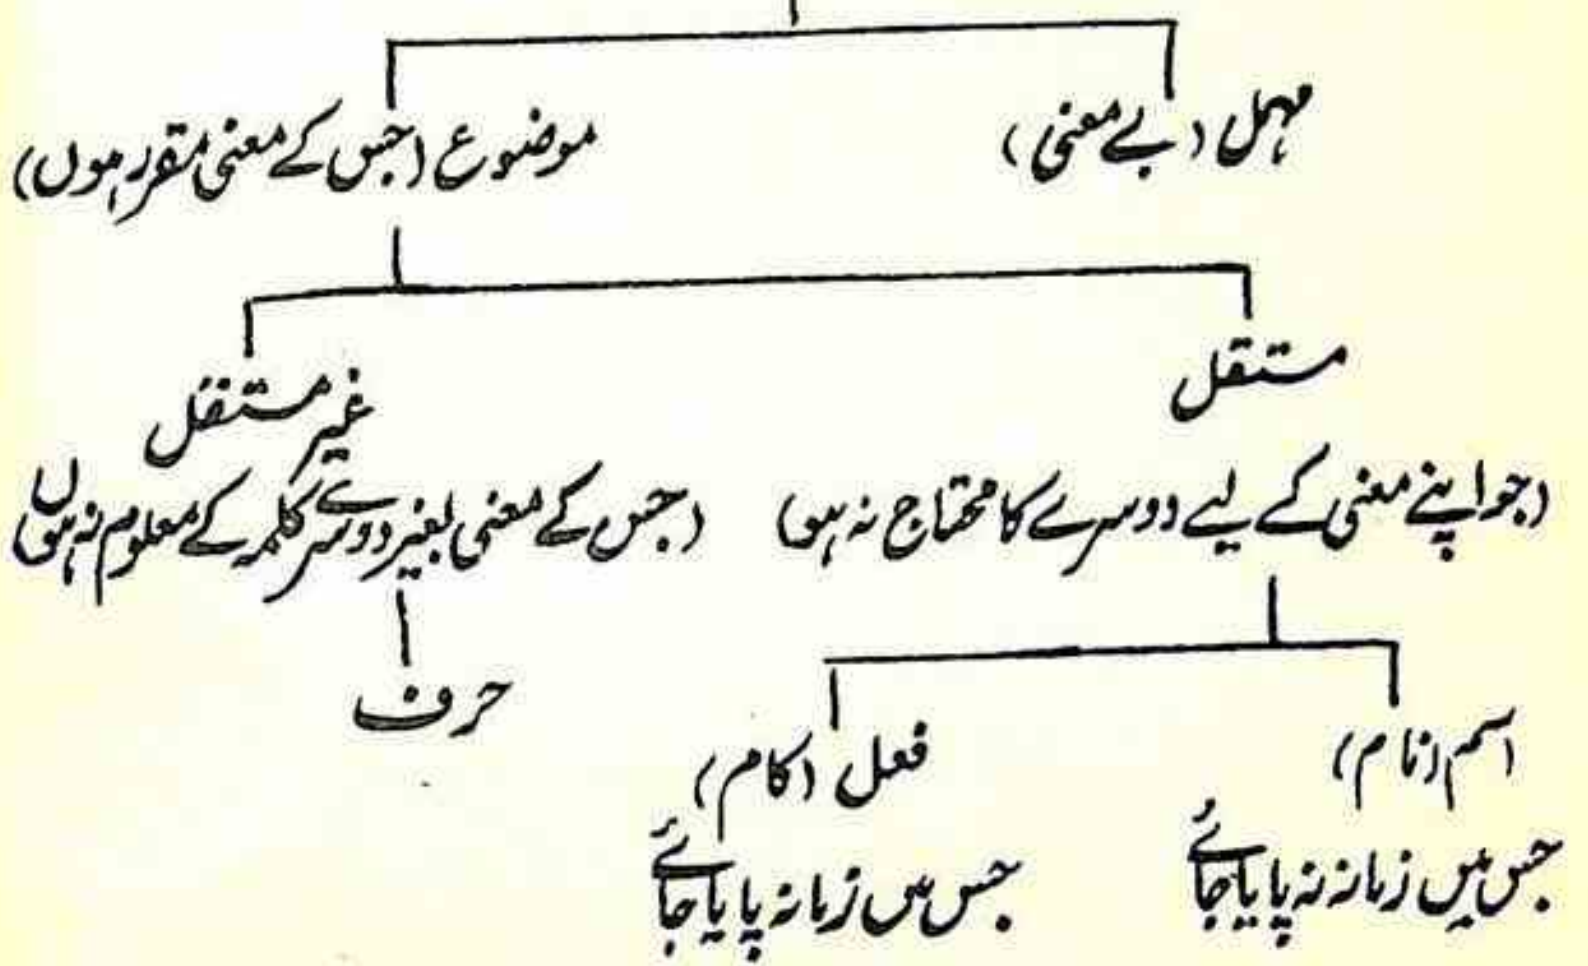 مہمل (بے معنی)
موضوع (جس کے معنی مقرر ہوں)
مستقل
غیر مستقل
(جو اپنے معنی کے لیے دوسرے کا محتاج نہ ہو)
(جس کے معنی بغیر دوسرے کلمہ کے معلوم نہ ہوں)
حرف
اسم (نام)
فعل (کام)
جس میں زمانہ نہ پایا جائے
جس میں زمانہ پایا جائے